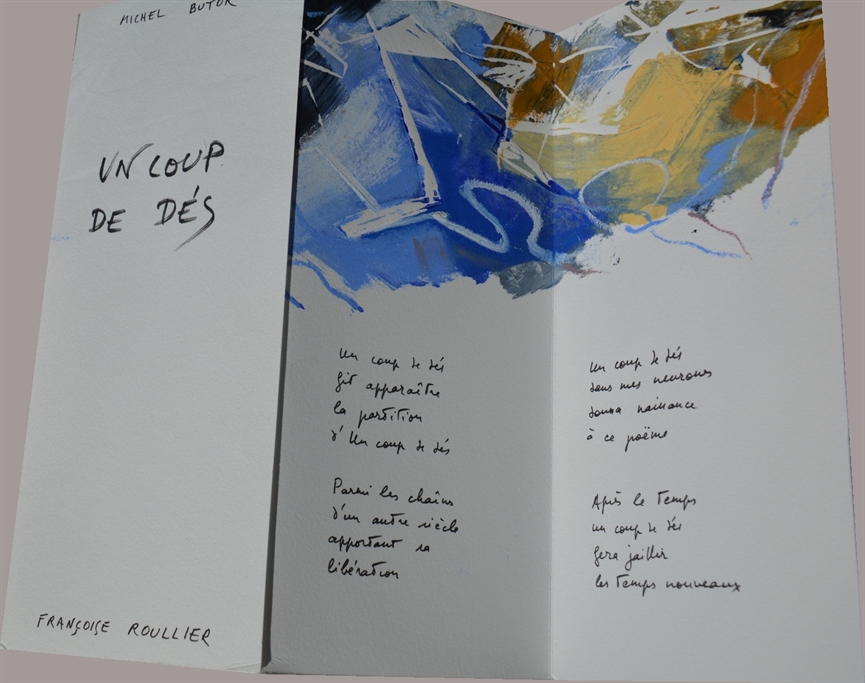 MICHEL BUTOR
UN COUP
DE DÉS
FRANÇOISE ROULLIER
Un coup de dés
fit apparaître
la partition
d'Un coup de dés
Parmi les chaîns
d'un autre siècle
apportant sa
libération
Un coup de dés
dans mes neurones
donna naissance
à ce poëme
Après le Temps
un coup de dés
fera jaillir
les Temps nouveaux